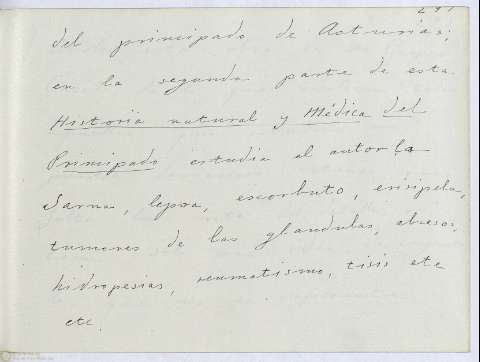 del principado de Asturias;
en la segunda parte de esta
Historia natural y Médica del
Principado estudia el autor la
Sarna, lepra, escorbuto, erisipela,
tumores de las glandulas, abcesos,
hidropesias, reumatismo, tisis etc
etc.